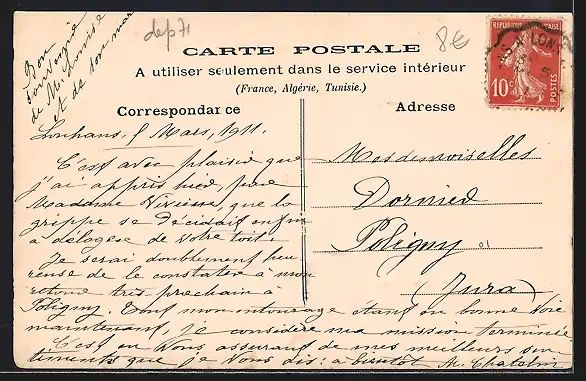 Bon
souvenir
de Mr Louise
et de son mari
dep 71
8€
CARTE POSTALE
A utiliser seulement dans le service intérieur
(France, Algérie, Tunisie.)
Correspondance
Adresse
REPUBLIQUE FRANÇAISE
10c
POSTES
Louhans, 5 Mars, 1911.
C'est avec plaisir que
j'ai appris hier, par
Madame Vivienne, que la
grippe se décidait enfin
a déloger de votre toit.
Je serai doublement heu
reuse de le constater à mon
retour très prochain à
Poligny. Tout mon entourage étant en bonne voie
maintenant, je considère ma mission terminée.
C'est en vous assurant de mes meilleurs sen
timents que je vous dis: à bientôt M. Chatelin
Mesdemoiselles
Dornier
Poligny
(Jura)